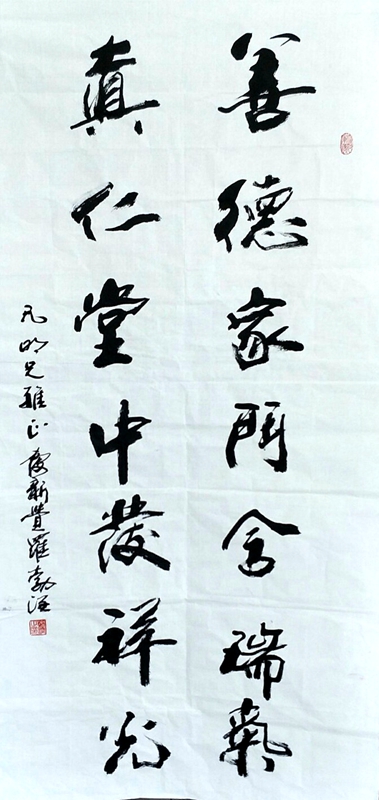 善德家門含瑞氣
真仁堂中發祥光
凡明兄雅正 愛新覺羅 勃汪